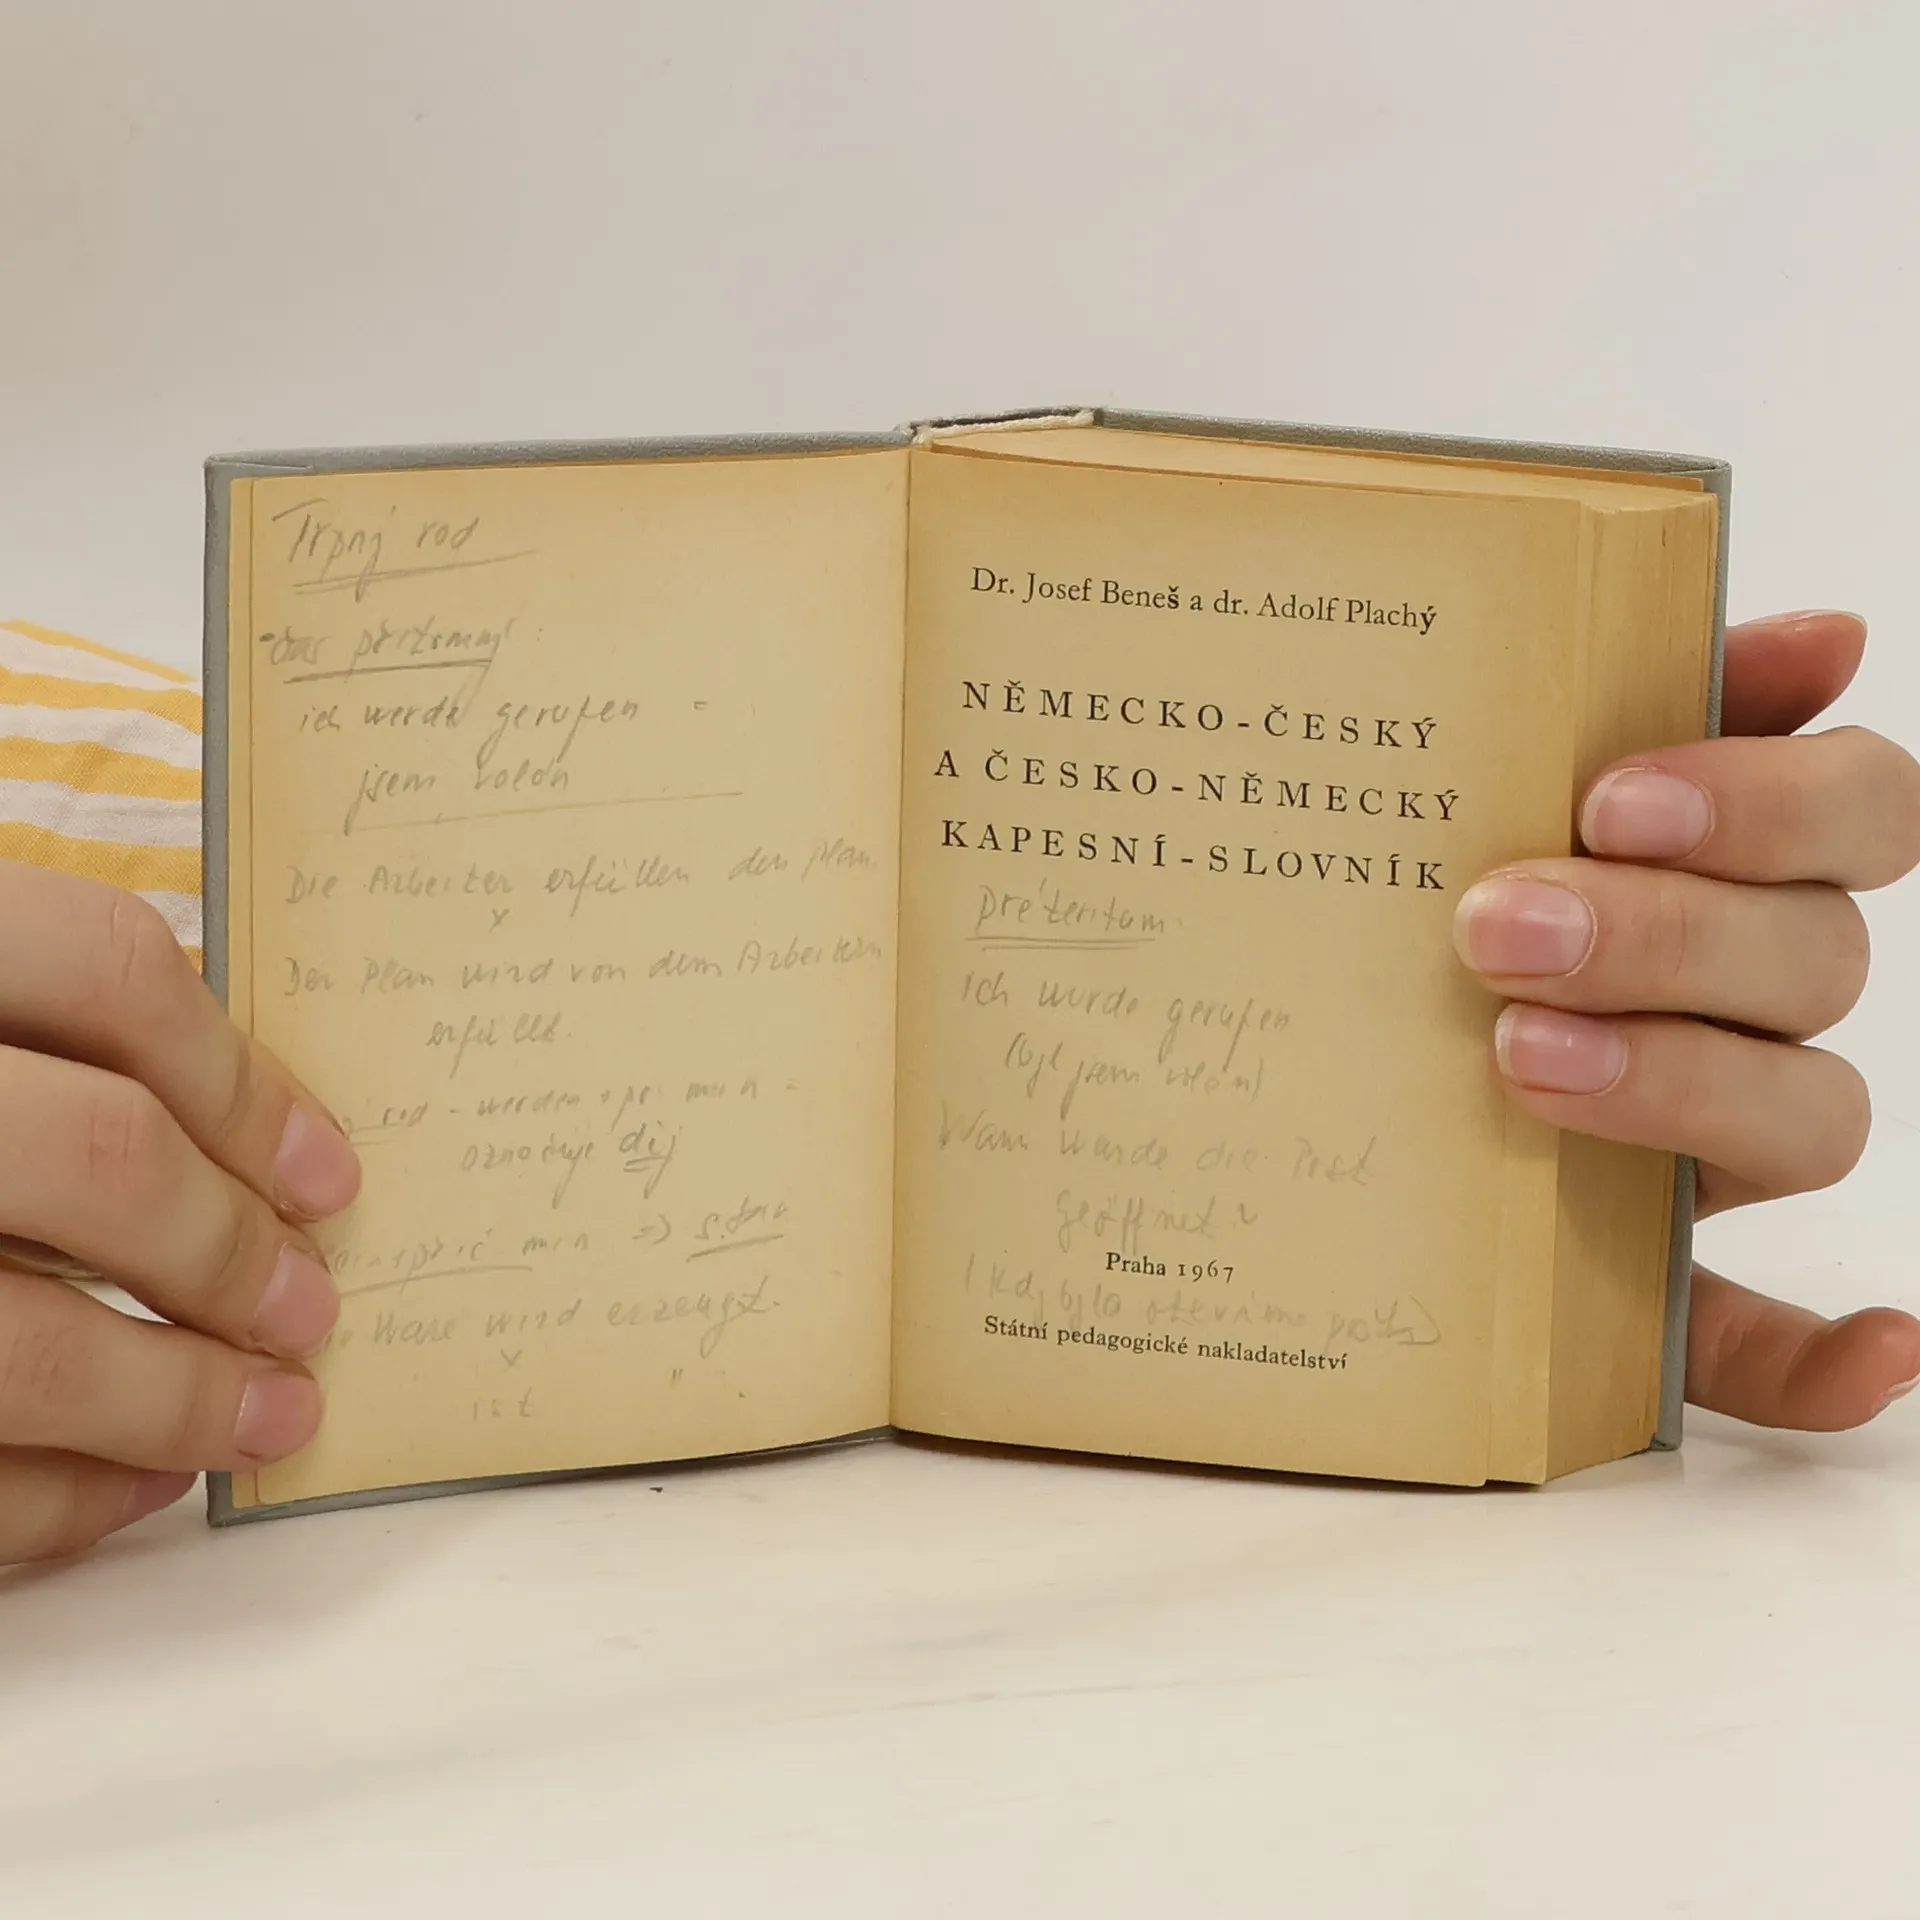 Trpný rod
čas přítomný:
ich werde gerufen =
jsem volán
Die Arbeiter erfüllen den Plan.
x
Der Plan wird von dem Arbeitern
erfüllt.
rod - werden + př. min =
označuje děj
příč min => stav
Ware wird erzeugt.
x
ist "
Dr. Josef Beneš a dr. Adolf Plachý
NĚMECKO-ČESKÝ
A ČESKO-NĚMECKÝ
KAPESNÍ-SLOVNÍK
Préteritum
ich wurde gerufen
(byl jsem volán)
Wann wurde die Post
geöffnet?
Praha 1967
(Kdy byla otevřena pošta)
Státní pedagogické nakladatelství